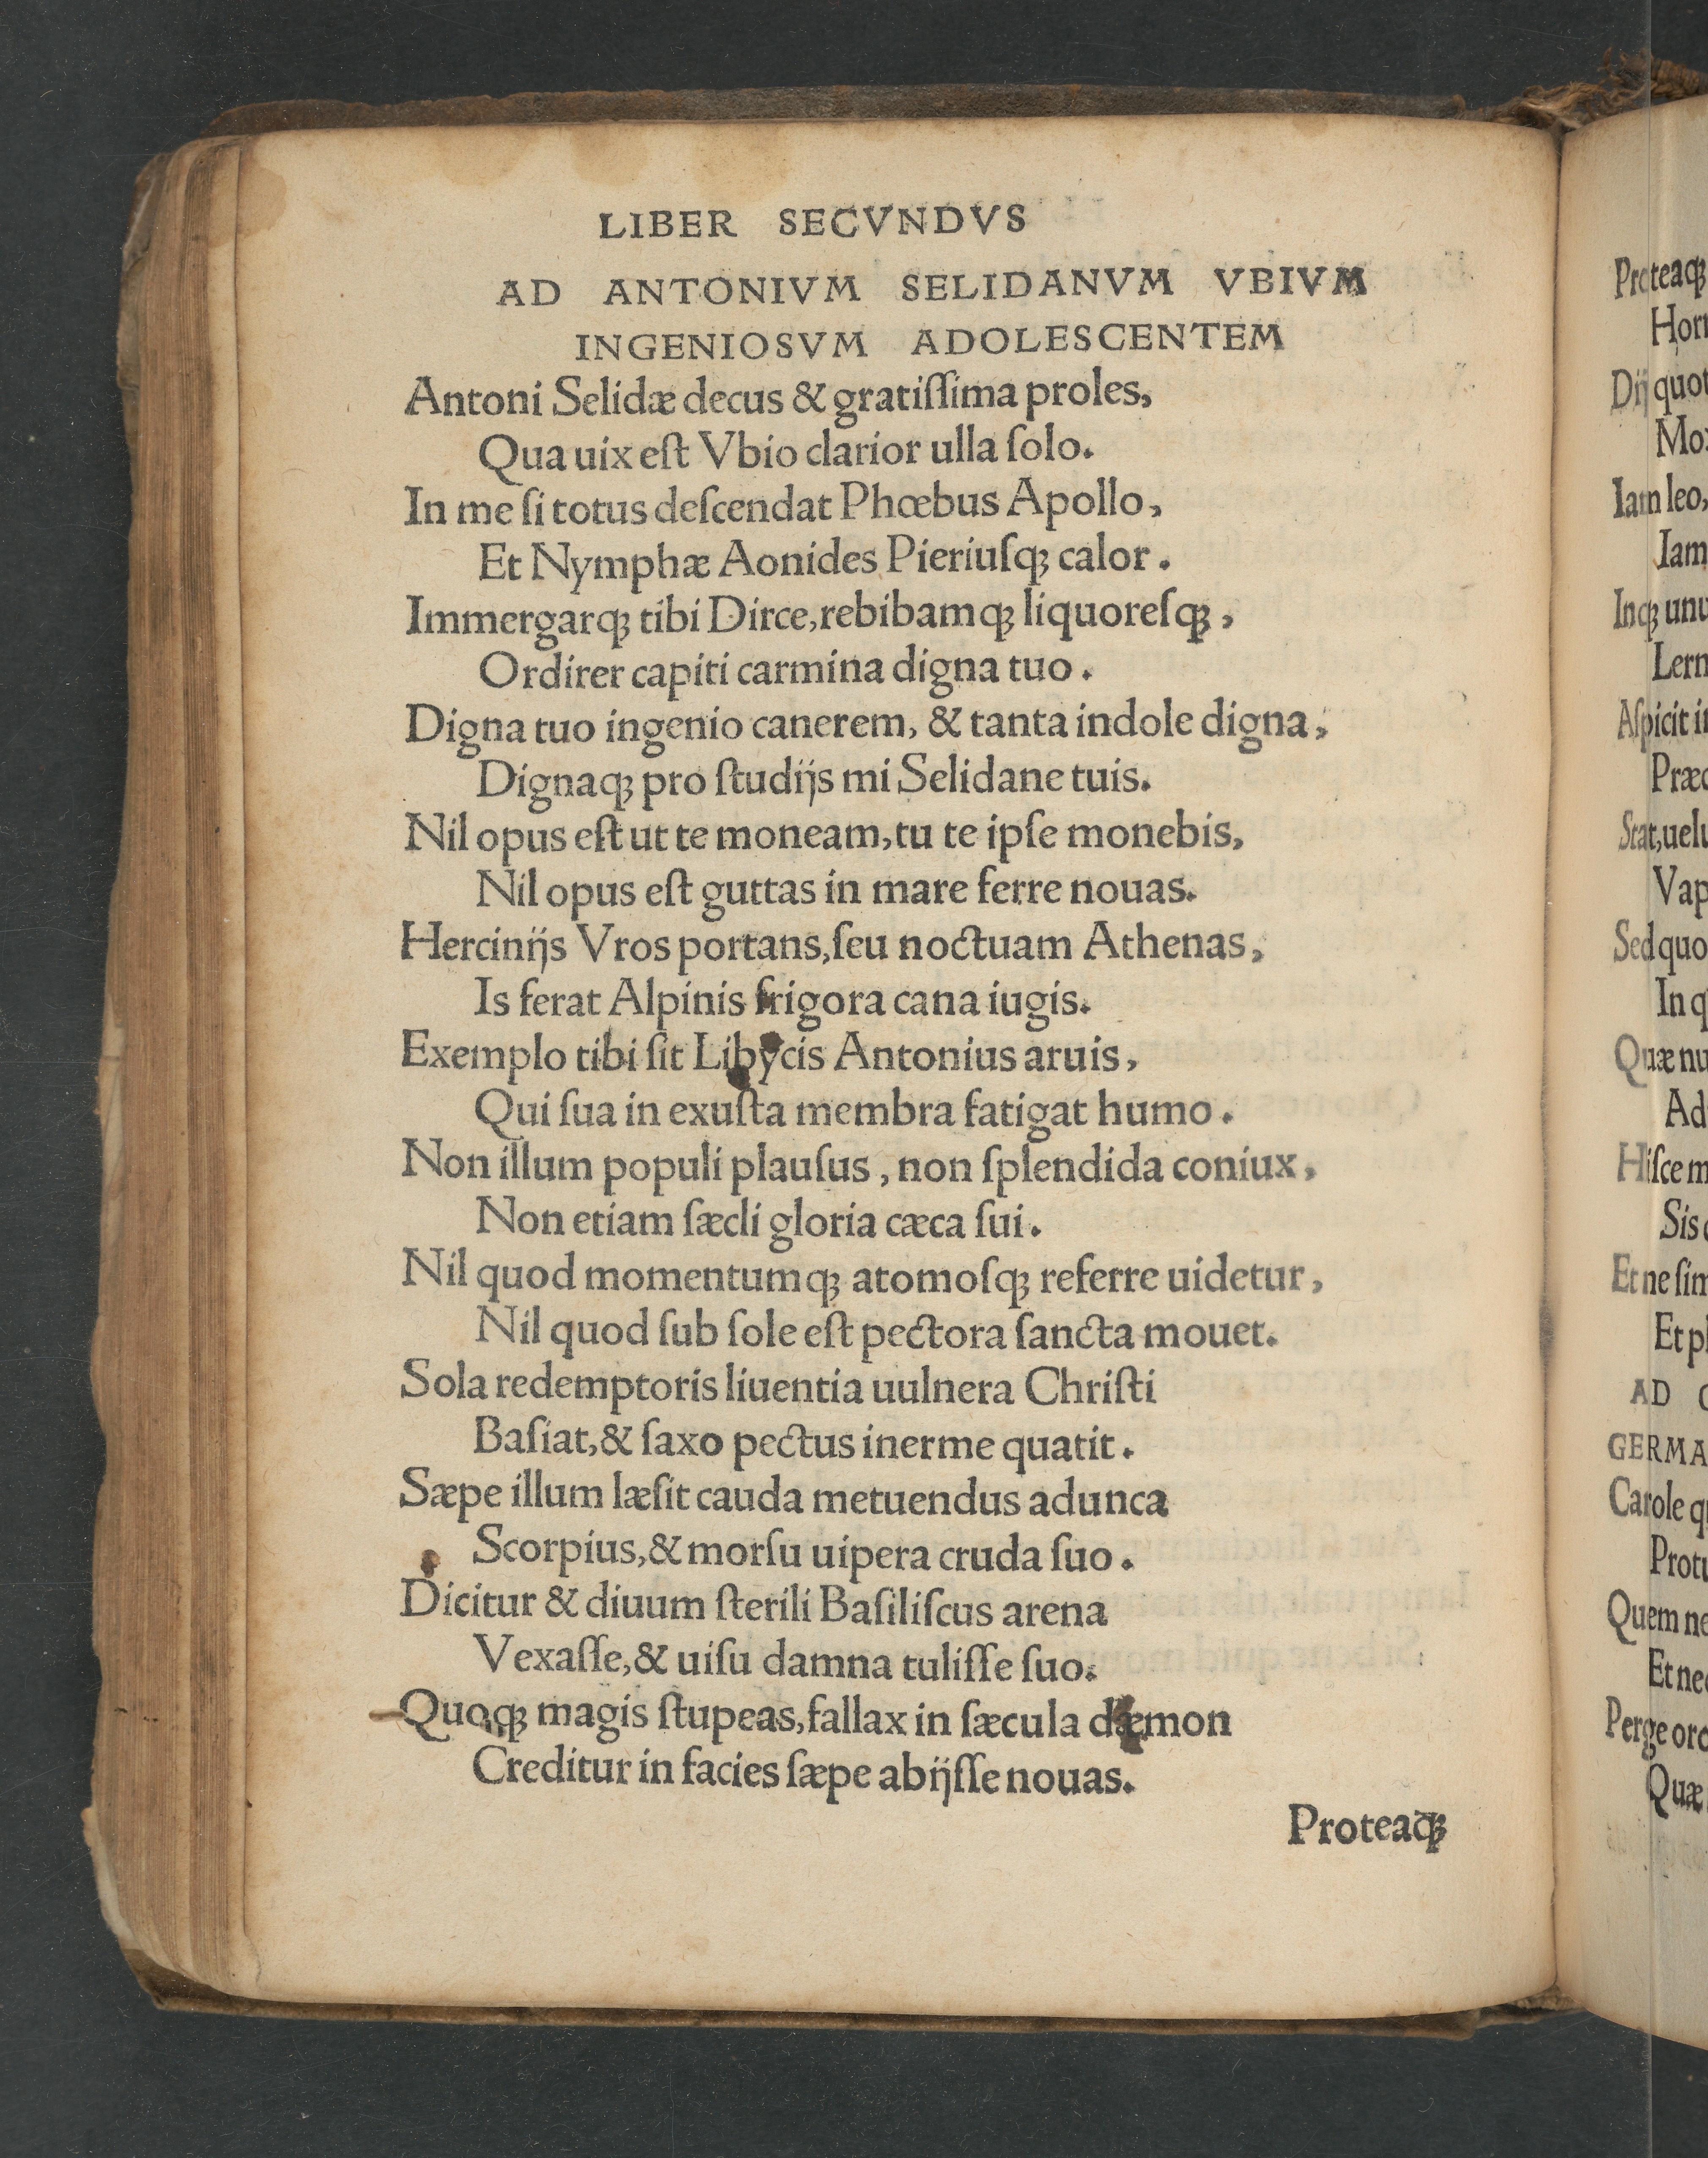 LIBER SECVNDVS
AD ANTONIVM SELIDANVM VBIVM
INGENIOSVM ADOLESCENTEM
Antoni Selidæ decus & gratiſſima proles,
Qua uix eſt Vbio clarior ulla ſolo.
In me ſi totus deſcendat Phœbus Apollo,
Et Nymphæ Aonides Pieriuſqꝫ calor.
Immergarqꝫ tibi Dirce,rebibamqꝫ liquoreſqꝫ,
Ordirer capiti carmina digna tuo.
Digna tuo ingenio canerem, & tanta indole digna,
Dignaqꝫ pro ſtudijs mi Selidane tuis.
Nil opus eſt ut te moneam,tu te ipſe monebis,
Nil opus eſt guttas in mare ferre nouas.
Hercinijs Vros portans,ſeu noctuam Athenas,
Is ferat Alpinis frigora cana iugis.
Exemplo tibi ſit Libycis Antonius aruis,
Qui ſua in exuſta membra fatigat humo.
Non illum populi plauſus, non ſplendida coniux,
Non etiam ſæcli gloria cæca ſui.
Nil quod momentumqꝫ atomoſqꝫ referre uidetur,
Nil quod ſub ſole eſt pectora ſancta mouet.
Sola redemptoris liuentia uulnera Chriſti
Baſiat,& ſaxo pectus inerme quatit.
Sæpe illum læſit cauda metuendus adunca
Scorpius,& morſu uipera cruda ſuo.
Dicitur & diuum ſterili Baſiliſcus arena
Vexaſſe,& uiſu damna tuliſſe ſuo.
Quoqꝫ magis ſtupeas,fallax in ſæcula dæmon
Creditur in facies ſæpe abijſſe nouas.
Proteaqꝫ
Proteaqꝫ
Dij
Iam leo,
Iam
Inqꝫ
Aſpicit
Stat,
Sed
In
Quæ
Ad
Hiſce
Sis
Et ne
Et
AD
Carole
Quem
Et
Perge
Quæ